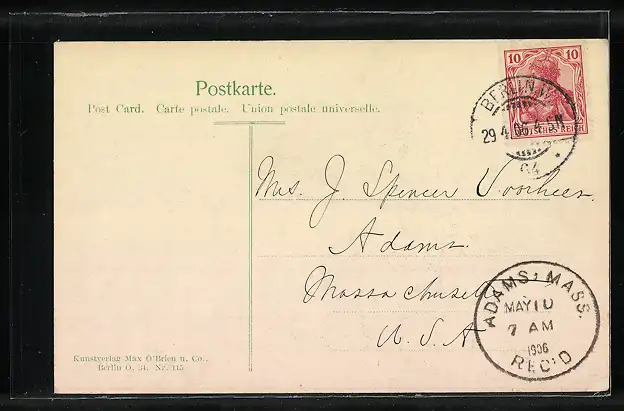 Postkarte.
Post Card. Carte postale. Union postale universelle.
10 10
DEUTSCHES REICH
BERLIN W.
29.4.06.4-5N
64
Mrs. J. Spencer Voorhees
Adams
Massachusetts
U.S.A
ADAMS, MASS.
MAY 10
7 AM
1906
REC'D
Kunstverlag Max O'Brien u. Co.,
Berlin O. 34. Nr. 115